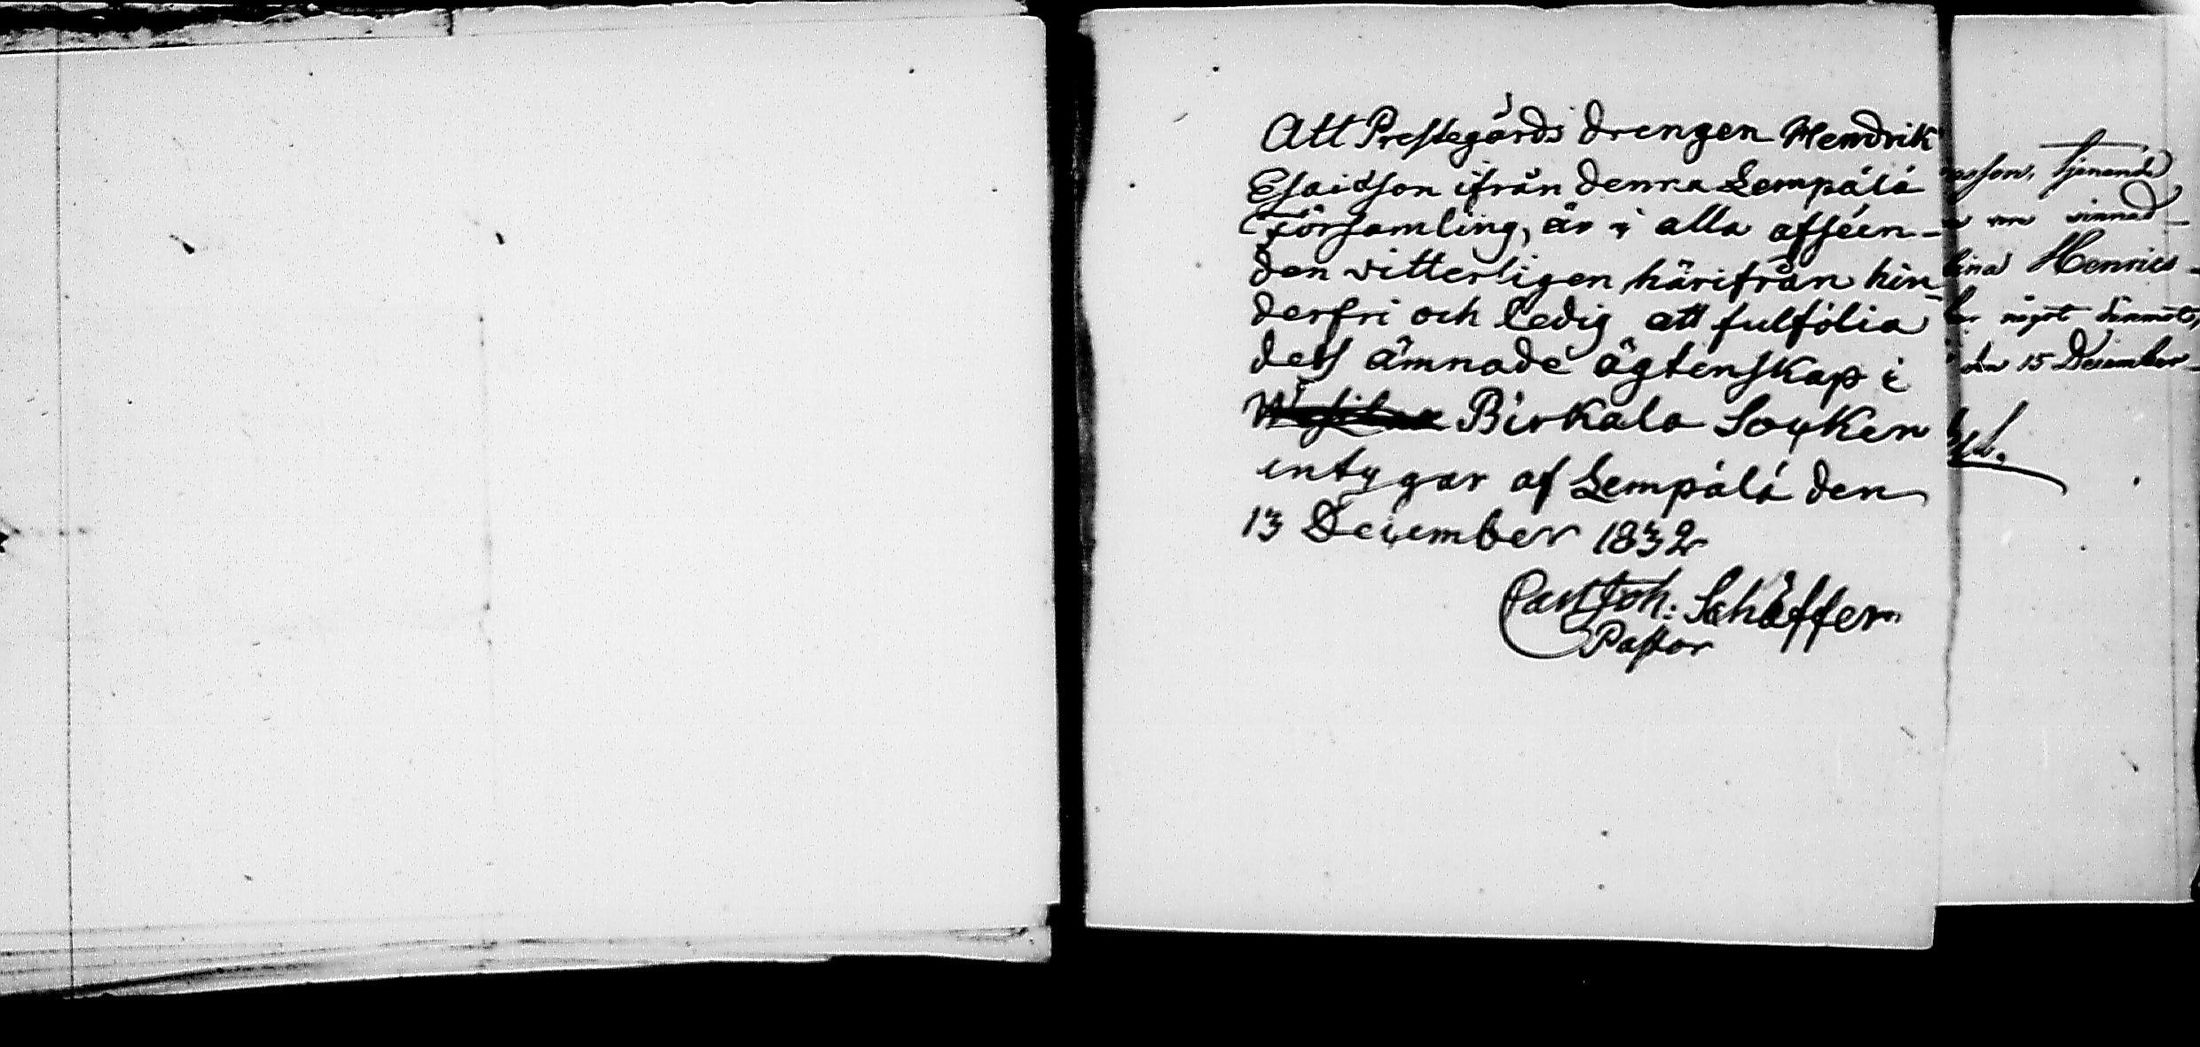 Att Prestegårds drengen Hendrik
Esaidson ifrån denna Lempälä
Församling, är i alla afséen-
den vitterligen härifrån hin-
derfri och ledig att fulfölia
dess ämnade ägtenskap i
Birkala Soçken
intygar af Lempälä den
13 December 1832
Joh: Schäffer
Pastor
son, tjenande
Henrics-
något
den 15 December